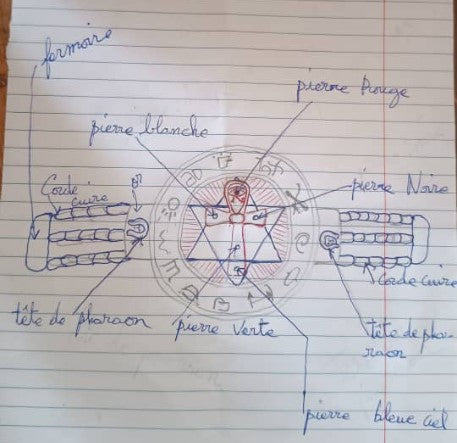 fermoire
pierre Rouge
pierre blanche
pierre Noire
Corde
cuire
or
Corde cuire
tête de pharaon
pierre verte
tête de pha-
raon
pierre bleue ciel